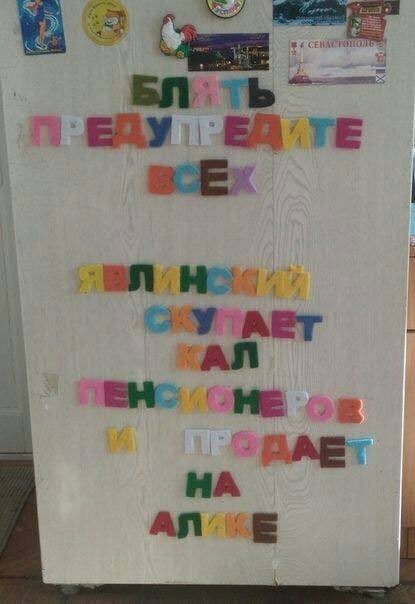 СЕВАСТОПОЛЬ
БЛЯТЬ
ПРЕДУПРЕДИТЕ
ВСЕХ
ЯВЛИНСКИЙ
СКУПАЕТ
КАЛ
ПЕНСИОНЕРОВ
И ПРОДАЕТ
НА
АЛИКЕ